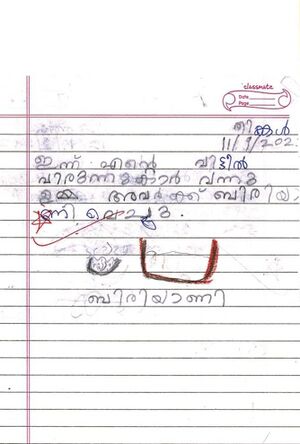 classmate
Date
Page
തിങ്കൾ
11/9/202
ഇന്ന് എന്റെ വീട്ടിൽ
വിരുന്നുകാർ വന്നു
അവർക്ക് ബിരിയ
ണി വെച്ചു.
ബിരിയാണി